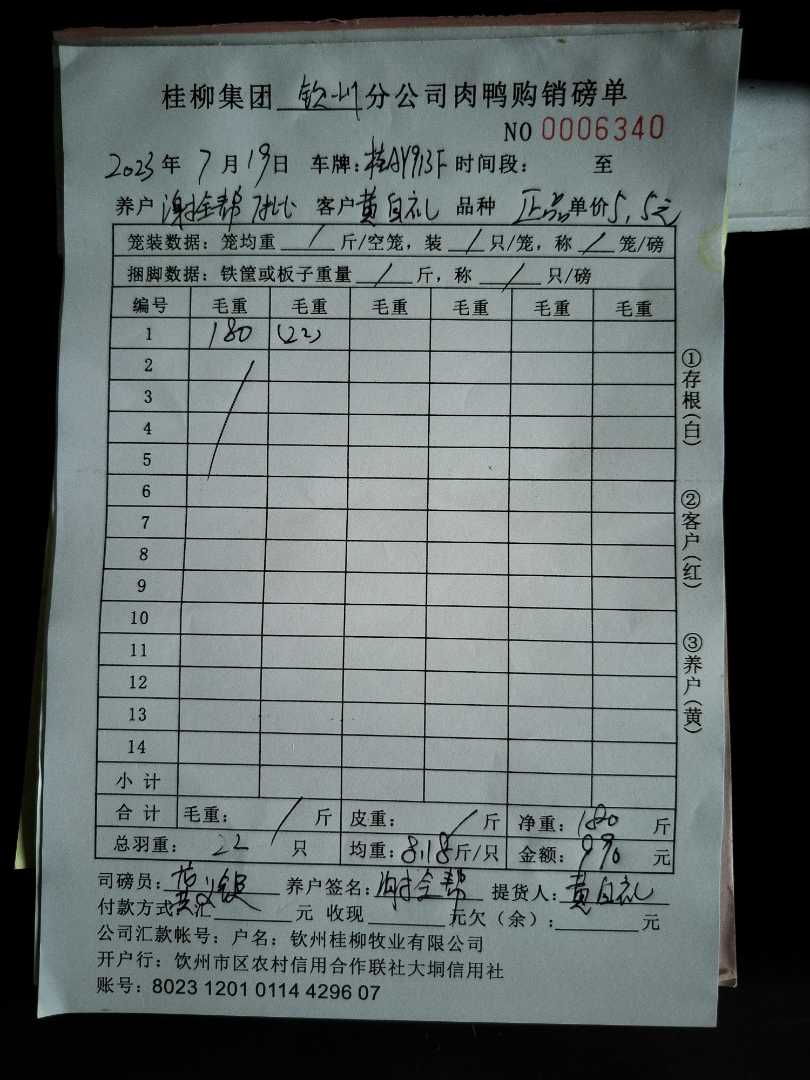 桂柳集团 钦州 分公司肉鸭购销磅单
NO 0006340
2023 年 7 月 19 日 车牌: 时间段: 至
养户 谢全帮 客户 黄自礼 品种 正品 单价 5.5元
笼装数据: 笼均重 / 斤/空笼, 装 / 只/笼, 称 / 笼/磅
捆脚数据: 铁筐或板子重量 / 斤, 称 / 只/磅
编号 毛重 毛重 毛重 毛重 毛重 毛重
1 180 (22)
2
3
4
5
6
7
8
9
10
11
12
13
14
小计
合计 毛重: / 斤 皮重: / 斤 净重: 180 斤
总羽重: 22 只 均重: 8.18 斤/只 金额: 990 元
司磅员: 养户签名: 谢全帮 提货人: 黄自礼
付款方式: 汇 元 收现 元欠(余): 元
公司汇款帐号: 户名: 钦州桂柳牧业有限公司
开户行: 饮州市区农村信用合作联社大垌信用社
账号: 8023 1201 0114 4296 07
①存根(白)
②客户(红)
③养户(黄)